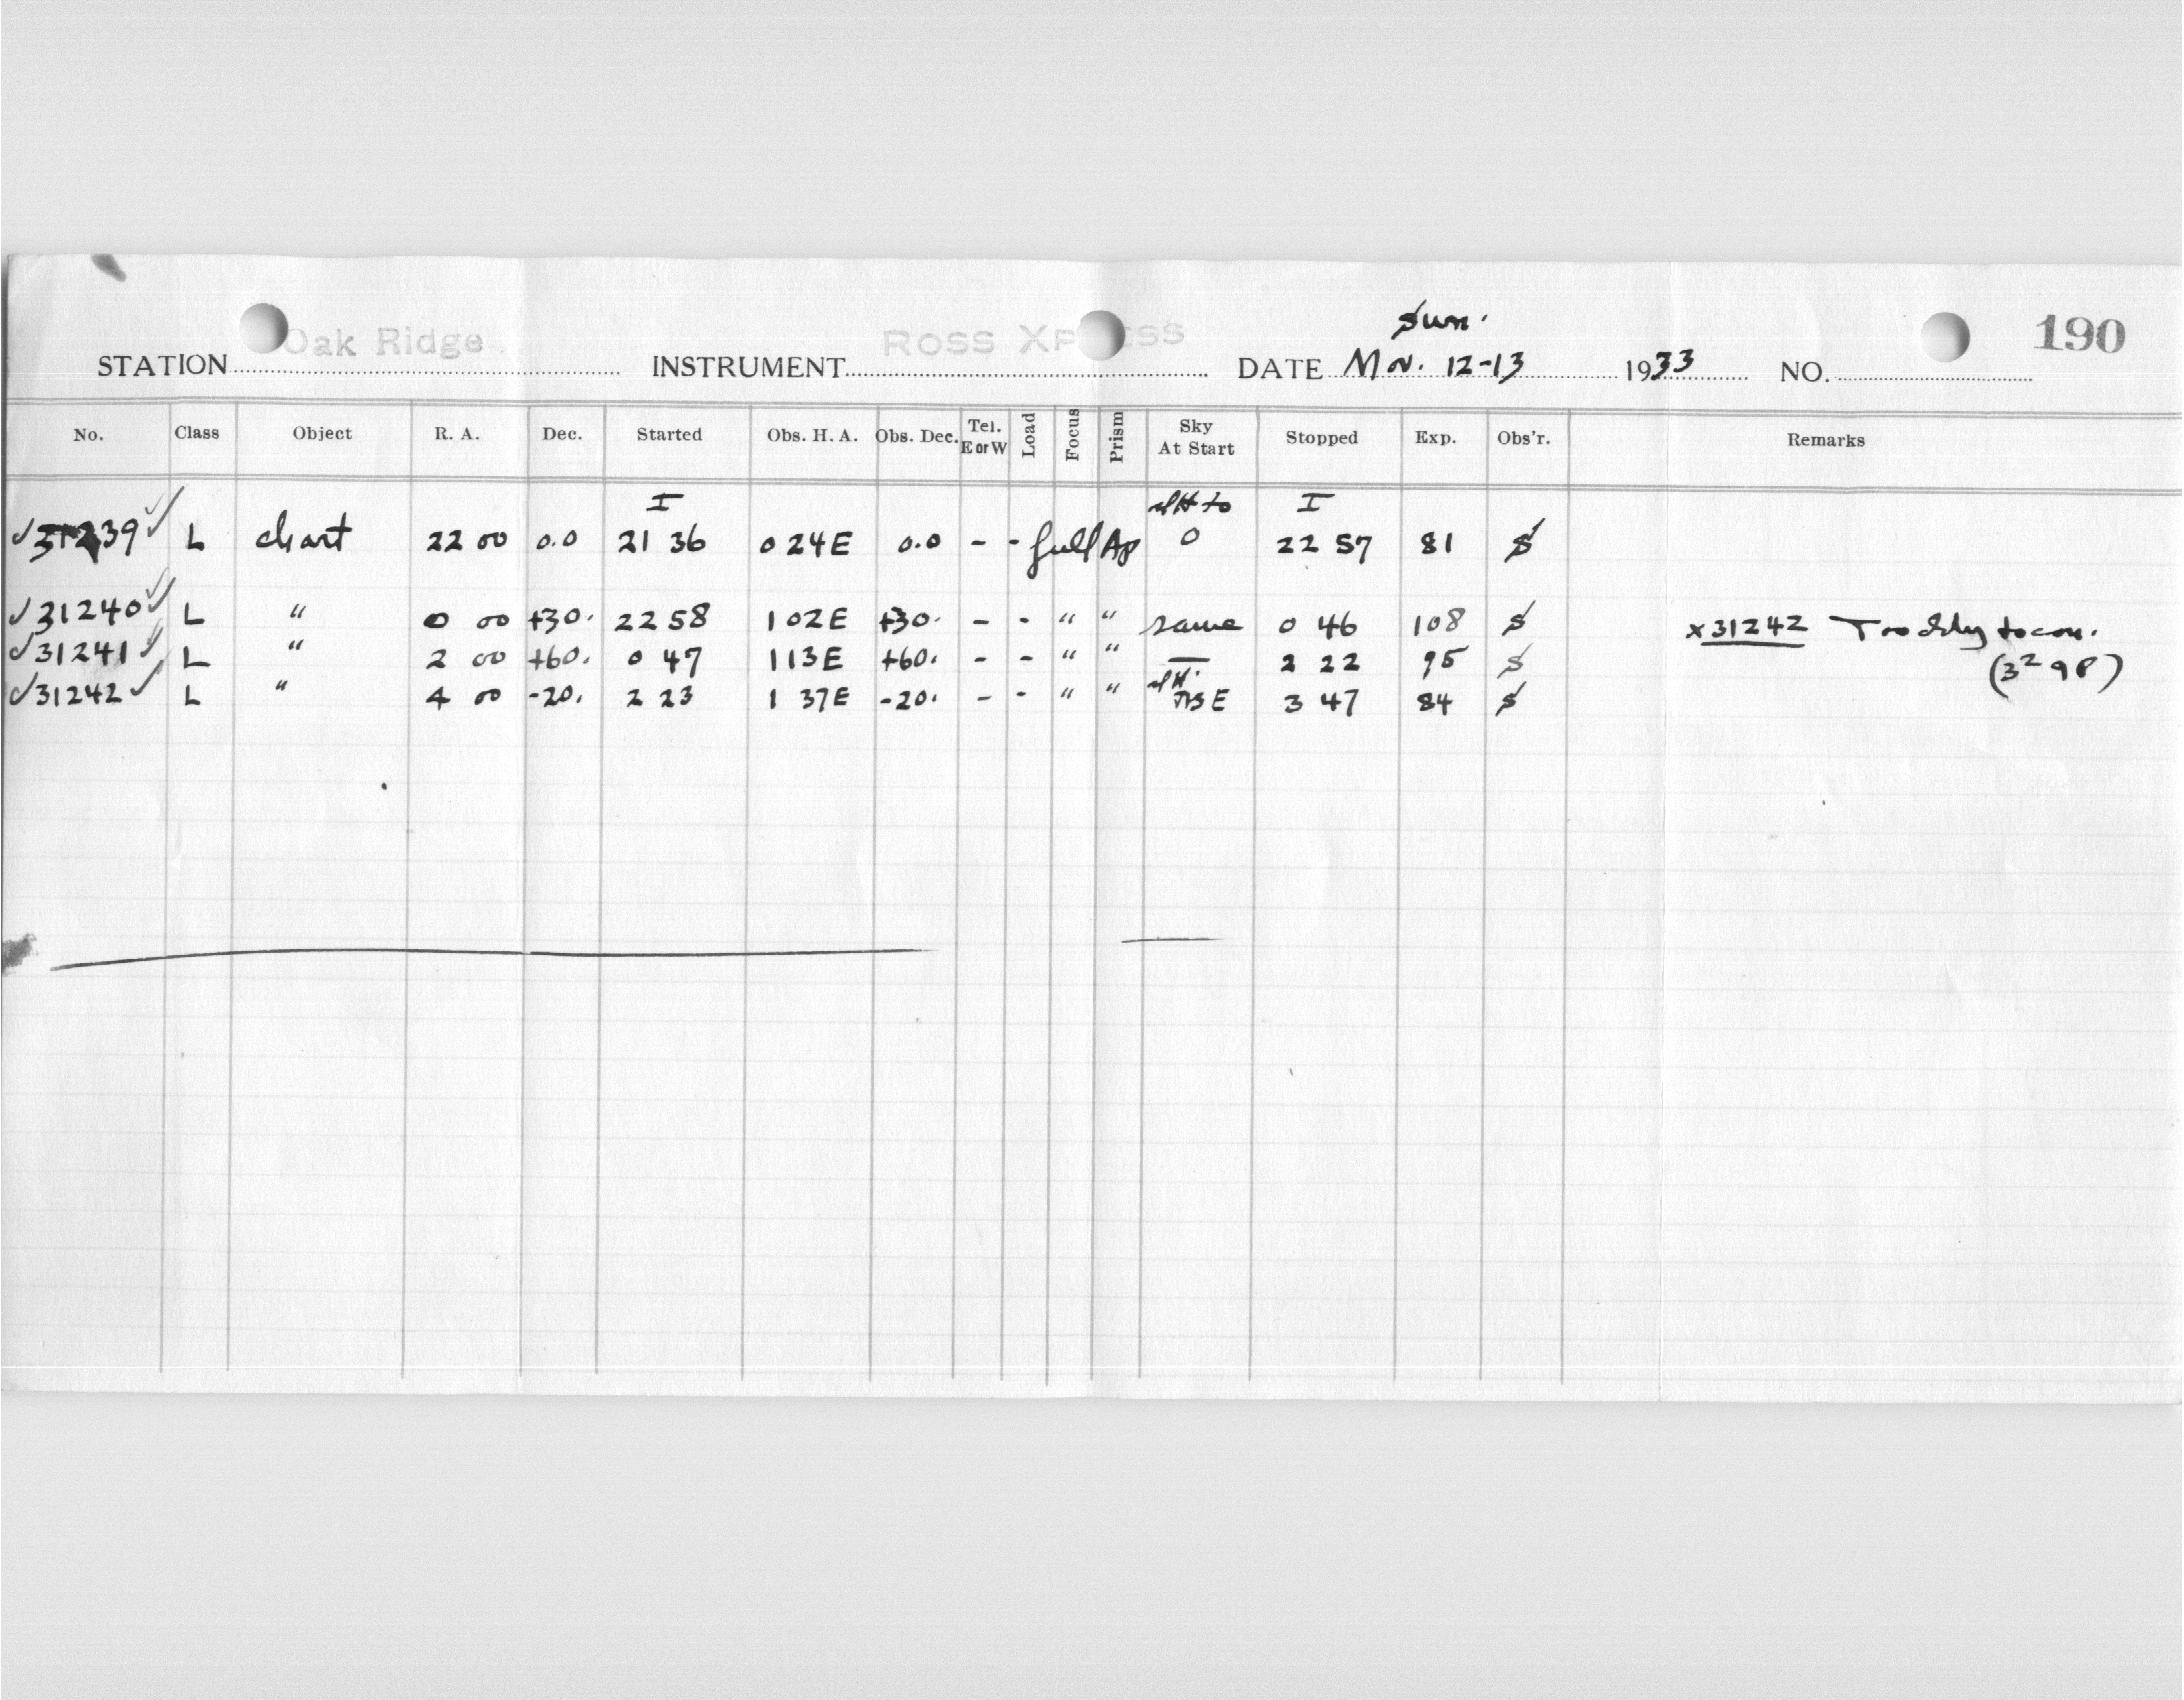 Sun.
190
STATION Oak Ridge INSTRUMENT ROSS XP ESS DATE Nov. 12-13 1933 NO.
No. Class Object R. A. Dec. Started Obs. H. A. Obs. Dec. Tel. E or W Load Focus Prism Sky At Start Stopped Exp. Obs'r. Remarks
I to I
✓31239✓ L chart 22 00 0.0 21 36 0 24E 0.0 - - full Ap 0 22 57 81 S
✓31240✓ L " 0 00 +30. 22 58 1 02E +30. - - " " same 0 46 108 S x31242 Too to con.
✓31241✓ L " 2 00 +60. 0 47 1 13E +60. - - " " — 2 22 95 S (3298)
✓31242✓ L " 4 00 -20. 2 23 1 37E -20. - - " " E 3 47 84 S